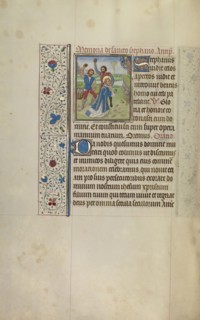 Memoria de sancto stephano. Antiph.
Stephanus
vidit celos
apertos vidit et
introivit beatus
homo cui celi pa
tebant. V Glo
ria et honore co
ronasti eum do
mine. Et constituisti eum super opera
manuum tuarum. Oremus. Oratio
Da nobis quesumus domine imi
tari quod colimus ut discamus
et inimicos diligere quia eius
celebramus, qui novit eti
am pro suis persecutoribus exorare do
minum nostrum ihesum xpristum
filium tuum qui tecum vivit et regnat
deus per omnia secula seculorum Amen